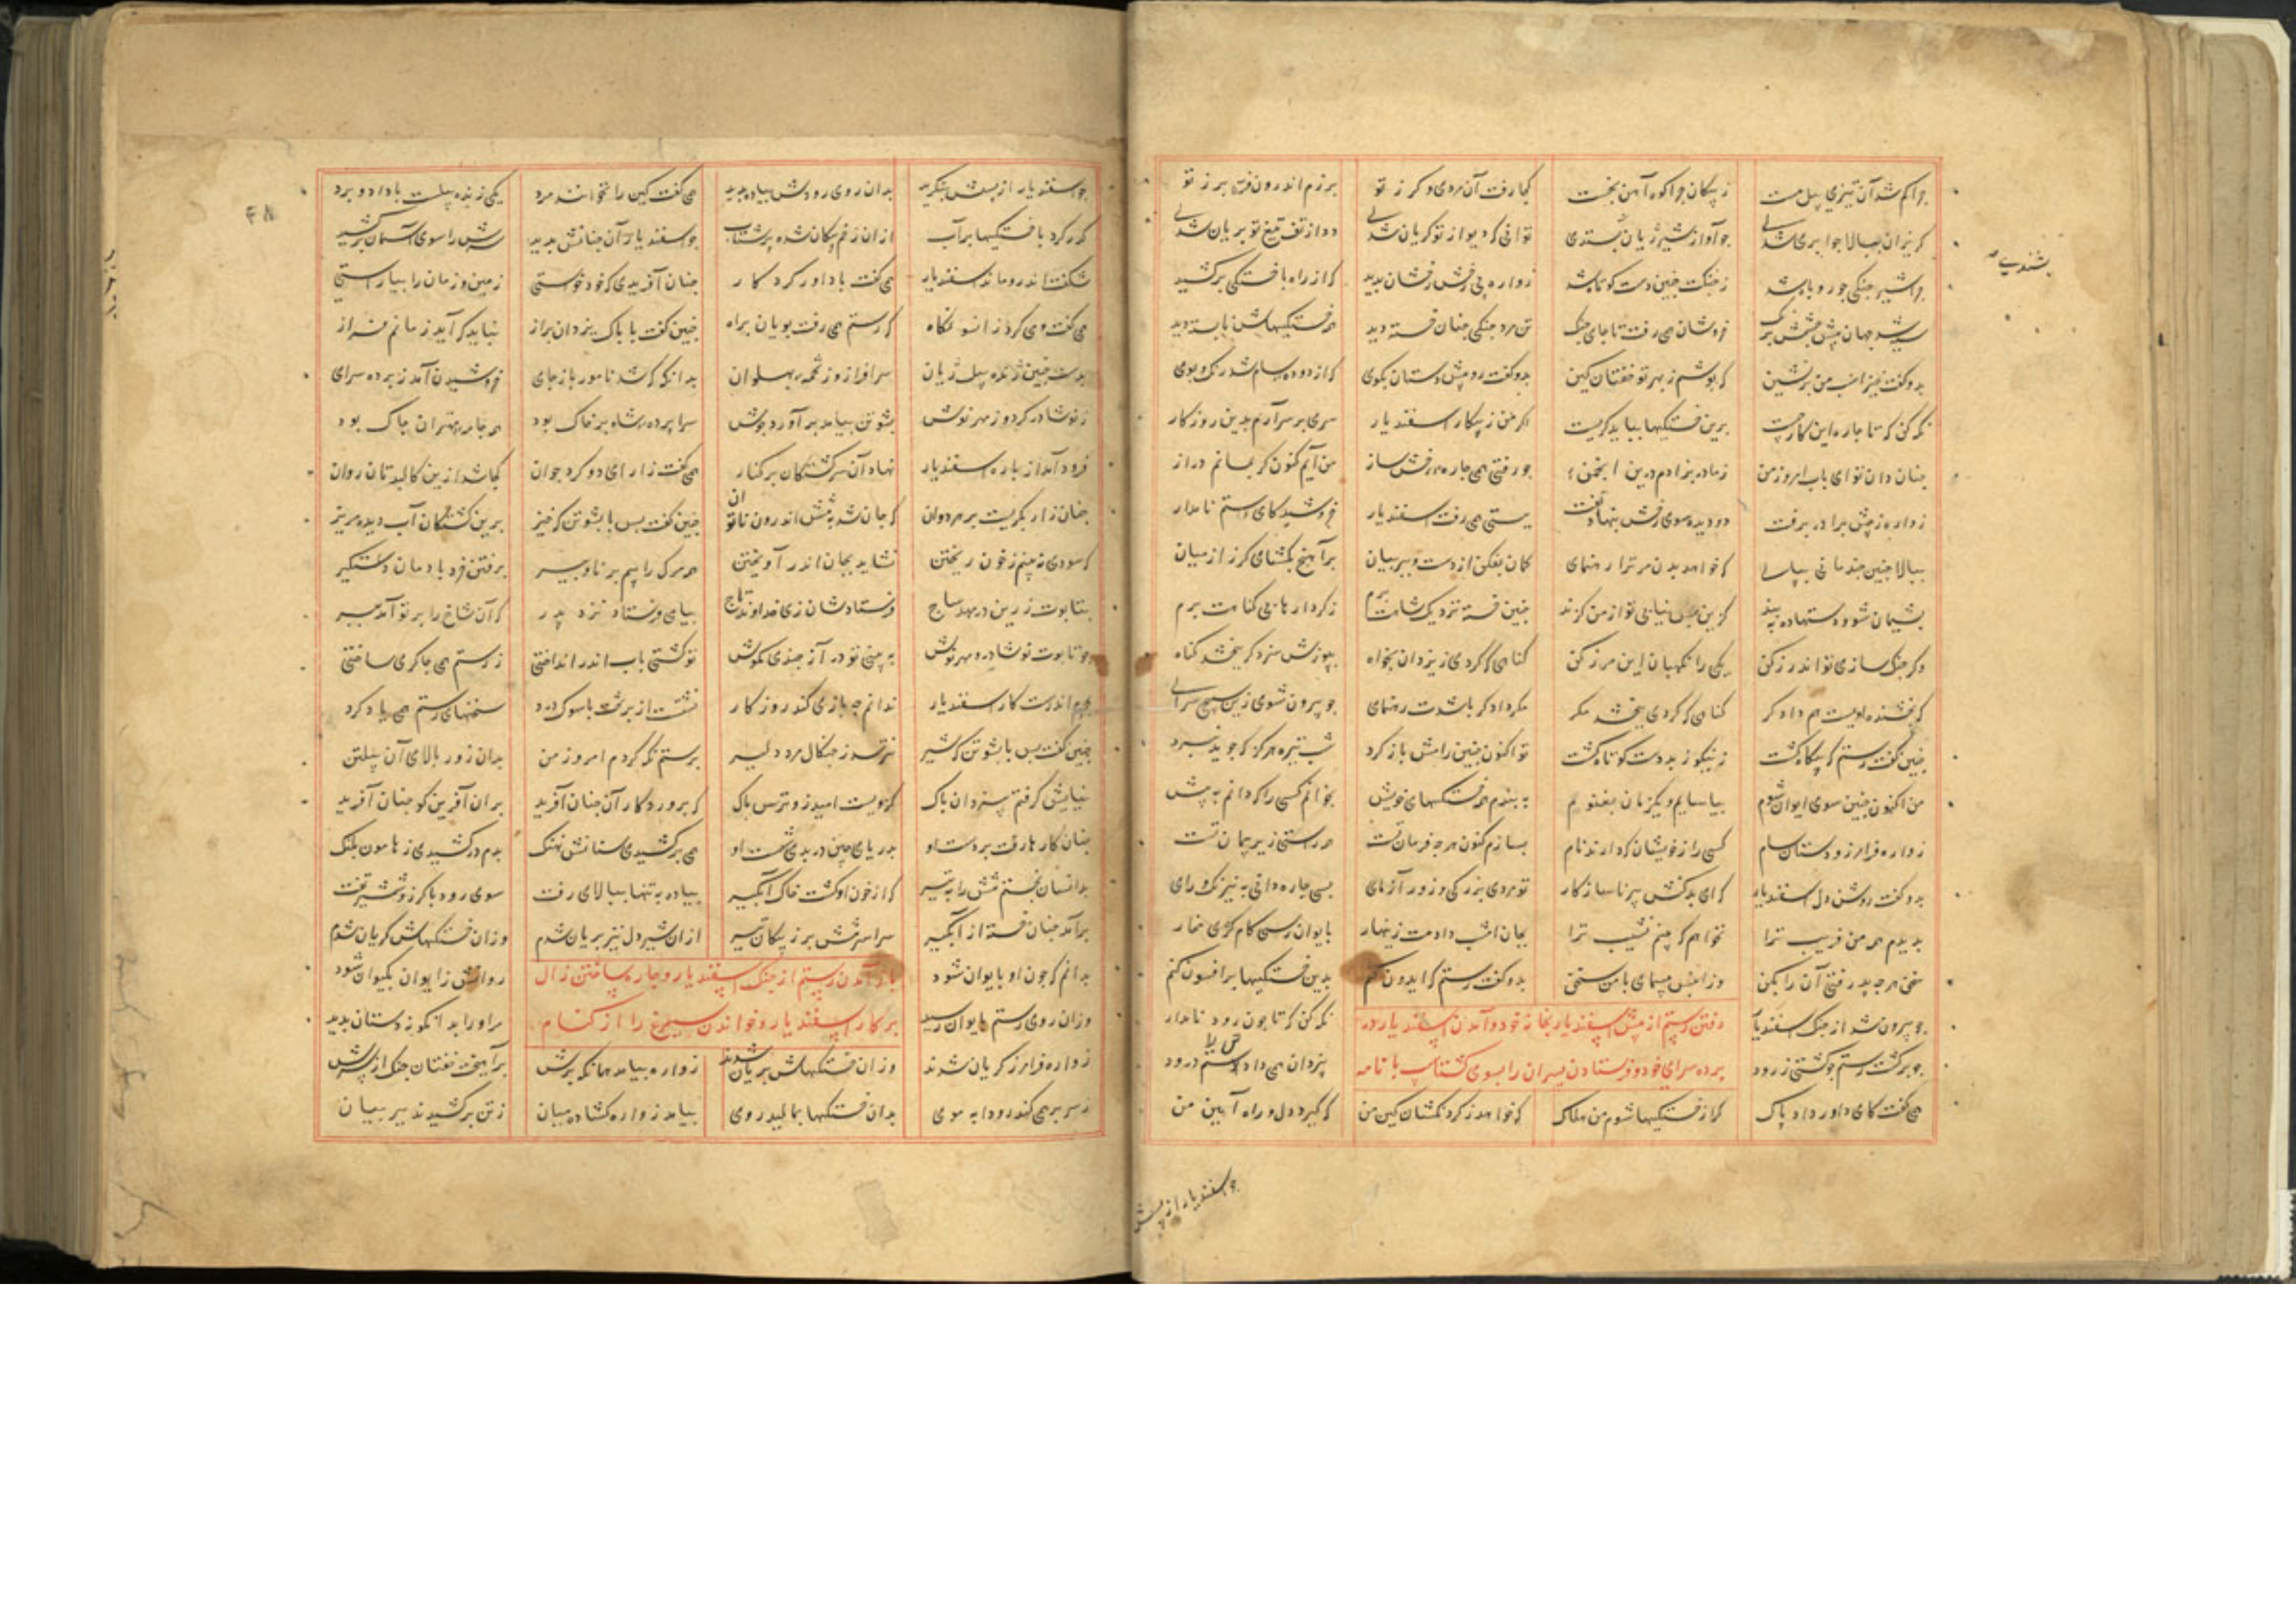 چرا کم شد آن تیزی پیل مست ز پیکان چرا کوه آهن بخست کجا رفت آن مردی و کرز تو برزم اندرون فره برز تو
کریزان ببالا چرا بر شدی چو آواز شیر ژیان بشندی توانی که دیو از تو کریان شدی دد از تف تیغ تو بریان شدی
بشندی
چرا شیر جنکی چو روباه شد ز جنکت چنین دست کوتاه شد زواره پی رخش رخشان بدید که از راه با خستکی برکشید
سیه شد جهان پیش چشمش برنک خروشان همی رفت تا جای جنک تن مرد جنکی چنان خسته دید همه خستکیهاش نابسته دید
بدو کفت خیز اسب من برنشین که پوشم ز بهر تو خفتان کین بدو کفت رو پیش دستان بکوی که از دوده سام شد رنک و بوی
نکه کن که تا چاره این کار چیست برین خستکیها بباید کریست اکر من ز پیکار اسفندیار سری بر سر آرم بدین روزکار
چنان دان تو ای باب امروز من ز مادر بزادم درین انجمن چو رفتی همی چاره رخش ساز من آیم کنون کر بمانم دراز
زواره ز پیش برادر برفت دو دیده سوی رخش بنهاد تفت بپستی همی رفت اسفندیار خروشید کای رستم نامدار
ببالا چنین چند مانی بپای که خواهد بدن مر ترا رهنمای کمان بفکن از دست و ببر بیان برآهنج بکشای کرز از میان
پشیمان شو و دست ده به بند کزین پس نیابی تو از من کزند چنین خسته نزدیک شاهت برم ز کردارها بی کناهت برم
وکر جنک سازی تو اندرز کن یکی را نکهبان این مرز کن کناهی که کردی ز یزدان بخواه بپوزش سزد کر ببخشد کناه
که بخشنده اویست هم دادکر کناهی که کردی ببخشد مکر مکر دادکر باشدت رهنمای چو بیرون شوی زین سپنجی سرای
چنین کفت رستم که بیکاه کشت ز نیک و ز بد دست کوتاه کشت تو اکنون چنین رامش باز کرد شب تیره هرکز که جوید نبرد
من اکنون چنین سوی ایوان شوم بیاسایم و یکزمان بغنویم به بندم همه خستکیهای خویش بخوانم کسی را که دانم به پیش
زواره فرامرز و دستان سام کسی را ز خویشان که دارند نام بسازم کنون هرچه فرمان تست همه راستی زیر پیمان تست
بدو کفت روشن دل اسفندیار که ای بدکنش پیر ناسازکار تو مردی بزرکی و زورآزمای بسی چاره دانی به نیرنک و رای
بدیدم همه من فریب ترا نخواهم که بینم نشیب ترا بجان امشب دادمت زینهار بایوان رسی کام کژی مخار
سخن هرچه پذرفتی آن را بکن وزین پس مپیمای با من سخن بدو کفت رستم که ایدون کنم بدین خستکیها بر افسون کنم
چو بیرون شد از جنک اسفندیار رفتن رستم از پیش اسفندیار بخانه خود و آمدن اسفندیار در نکه کن که تا چون رود نامدار
چو برکشت رستم چو کشتی ز رود پرده سرای خود و فرستادن پسران را بسوی کشتاسب با نامه بیزدان همی داد رستم درود
همی کفت کای داور داد پاک کر از خستکیها شوم من هلاک که خواهد ز کردنکشان کین من که کیرد دل و راه آیین من
چو اسفندیار از پسش
چو اسفندیار از پسش بنکرید بدان روی رودش پیاده بدید همی کفت کین را نخوانند مرد یکی ژنده پیلست با دار و برد
کذر کرد با خستکیها بر آب ازان زخم پیکان شده پرشتاب چو اسفندیار آن چنانش بدید سرش را سوی آسمان برکشید
شکفت اندرو ماند اسفندیار همی کفت با داور کردکار چنان آفریدی که خود خواستی زمین و زمان را بیاراستی
همی کفت و می کرد زانسو نکاه که رستم همی رفت پویان براه چنین کفت با پاک یزدان براز نباید که آید زمانم فراز
بدست چنین ژنده پیل ژیان سرافراز وز تخمه پهلوان بدانکه که شد نامور باز جای خروشیدن آمد ز پرده سرای
ز نوشاذر کرد و ز مهرنوش پشوتن بیامد برآورد جوش سراپرده شاه پر خاک بود همه جامه مهتران چاک بود
فرود آمد از باره اسفندیار نهاد آن سر کشتکان بر کنار همی کفت زار ای دو کرد جوان کجا شد ازین کالبدتان روان
چنان زار بکریست بر هر دوان که جان شد به تنش اندرون ناتوان چنین کفت پس با پشوتن که خیز برین کشتکان آب دیده مریز
که سودی نه بینم ز خون ریختن نشاید بجان اندر آویختن همه مرک راییم برنا و پیر برفتن خرد بادمان دستکیر
بتابوت زرین در مهد ساج فرستادشان زی خداوند تاج پیامی فرستاد نزد پدر که آن شاخ رای تو آمد ببر
چو تابوت نوشاذر و مهرنوش به بینی تو در آز چندی مکوش تو کشتی بآب اندر انداختی ز رستم همی چاکری ساختی
بچرم اندرست کار اسفندیار ندانم چه بازی کند روزکار نشست از بر تخت با سوک و درد سخنهای رستم همی یاد کرد
چنین کفت پس با پشوتن که شیر نترسد ز چنکال مرد دلیر برستم نکه کردم امروز من بدان زور بالای آن پیلتن
نیایش کرفتم بیزدان پاک کزویست امید و زو ترس و باک که پروردکار آن چنان آفرید بران آفرین کو جهان آفرید
چنان کارها رفت بر دست او بدریای چین در بدی شست او همی برکشیدی سنانش نهنک بدم در کشیدی ز هامون پلنک
بدانسان بخستم تنش را به تیر که از خون او کشت خاک آبکیر پیاده به تنها ببالای رفت سوی رود با کرز و شمشیر تفت
برآمد چنان خسته از آبکیر سراسر تنش پر ز پیکان تیر ازان شیردل نیز بریان شدم وزان خستکیهاش کریان شدم
بدانم که چون او بایوان شود باز آمدن رستم از جنک اسفندیار و چاره ساختن زال روانش ز ایوان بکیوان شود
وزان روی رستم بایوان رسید بر کار اسفندیار و خواندن سیمرغ را از کنام مر او را بدانکونه دستان بدید
زواره فرامرز کریان شدند وزان خستکیهاش بریان شدند زواره بیامد همانکه برش برآهیخت خفتان جنک از برش
ز سر بر همی کند رودابه موی بدان خستکیها بمالید روی بیامد زواره کشاده میان ز تن برکشیدند ببر بیان